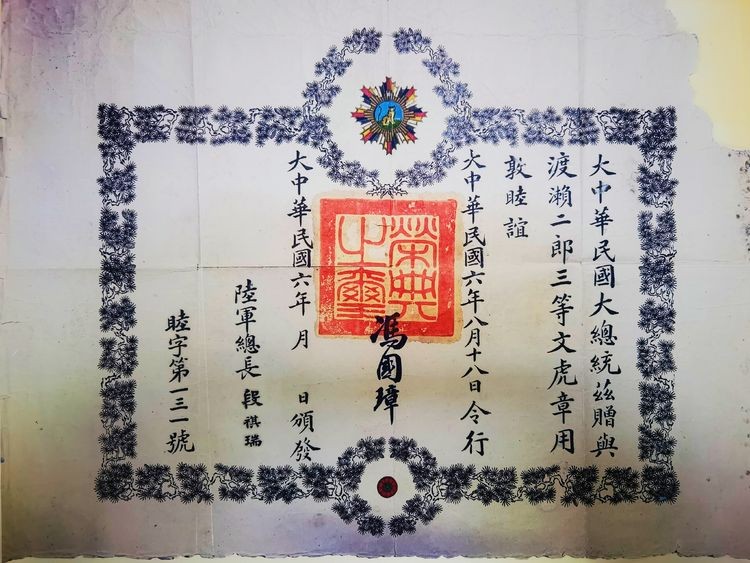 大中華民國大總統茲贈與
渡瀨二郎三等文虎章用
敦睦誼
大中華民國六年八月十八日令行
榮典之璽
馮國璋
大中華民國六年 月 日頒發
陸軍總長 段祺瑞
睦字第一三一號